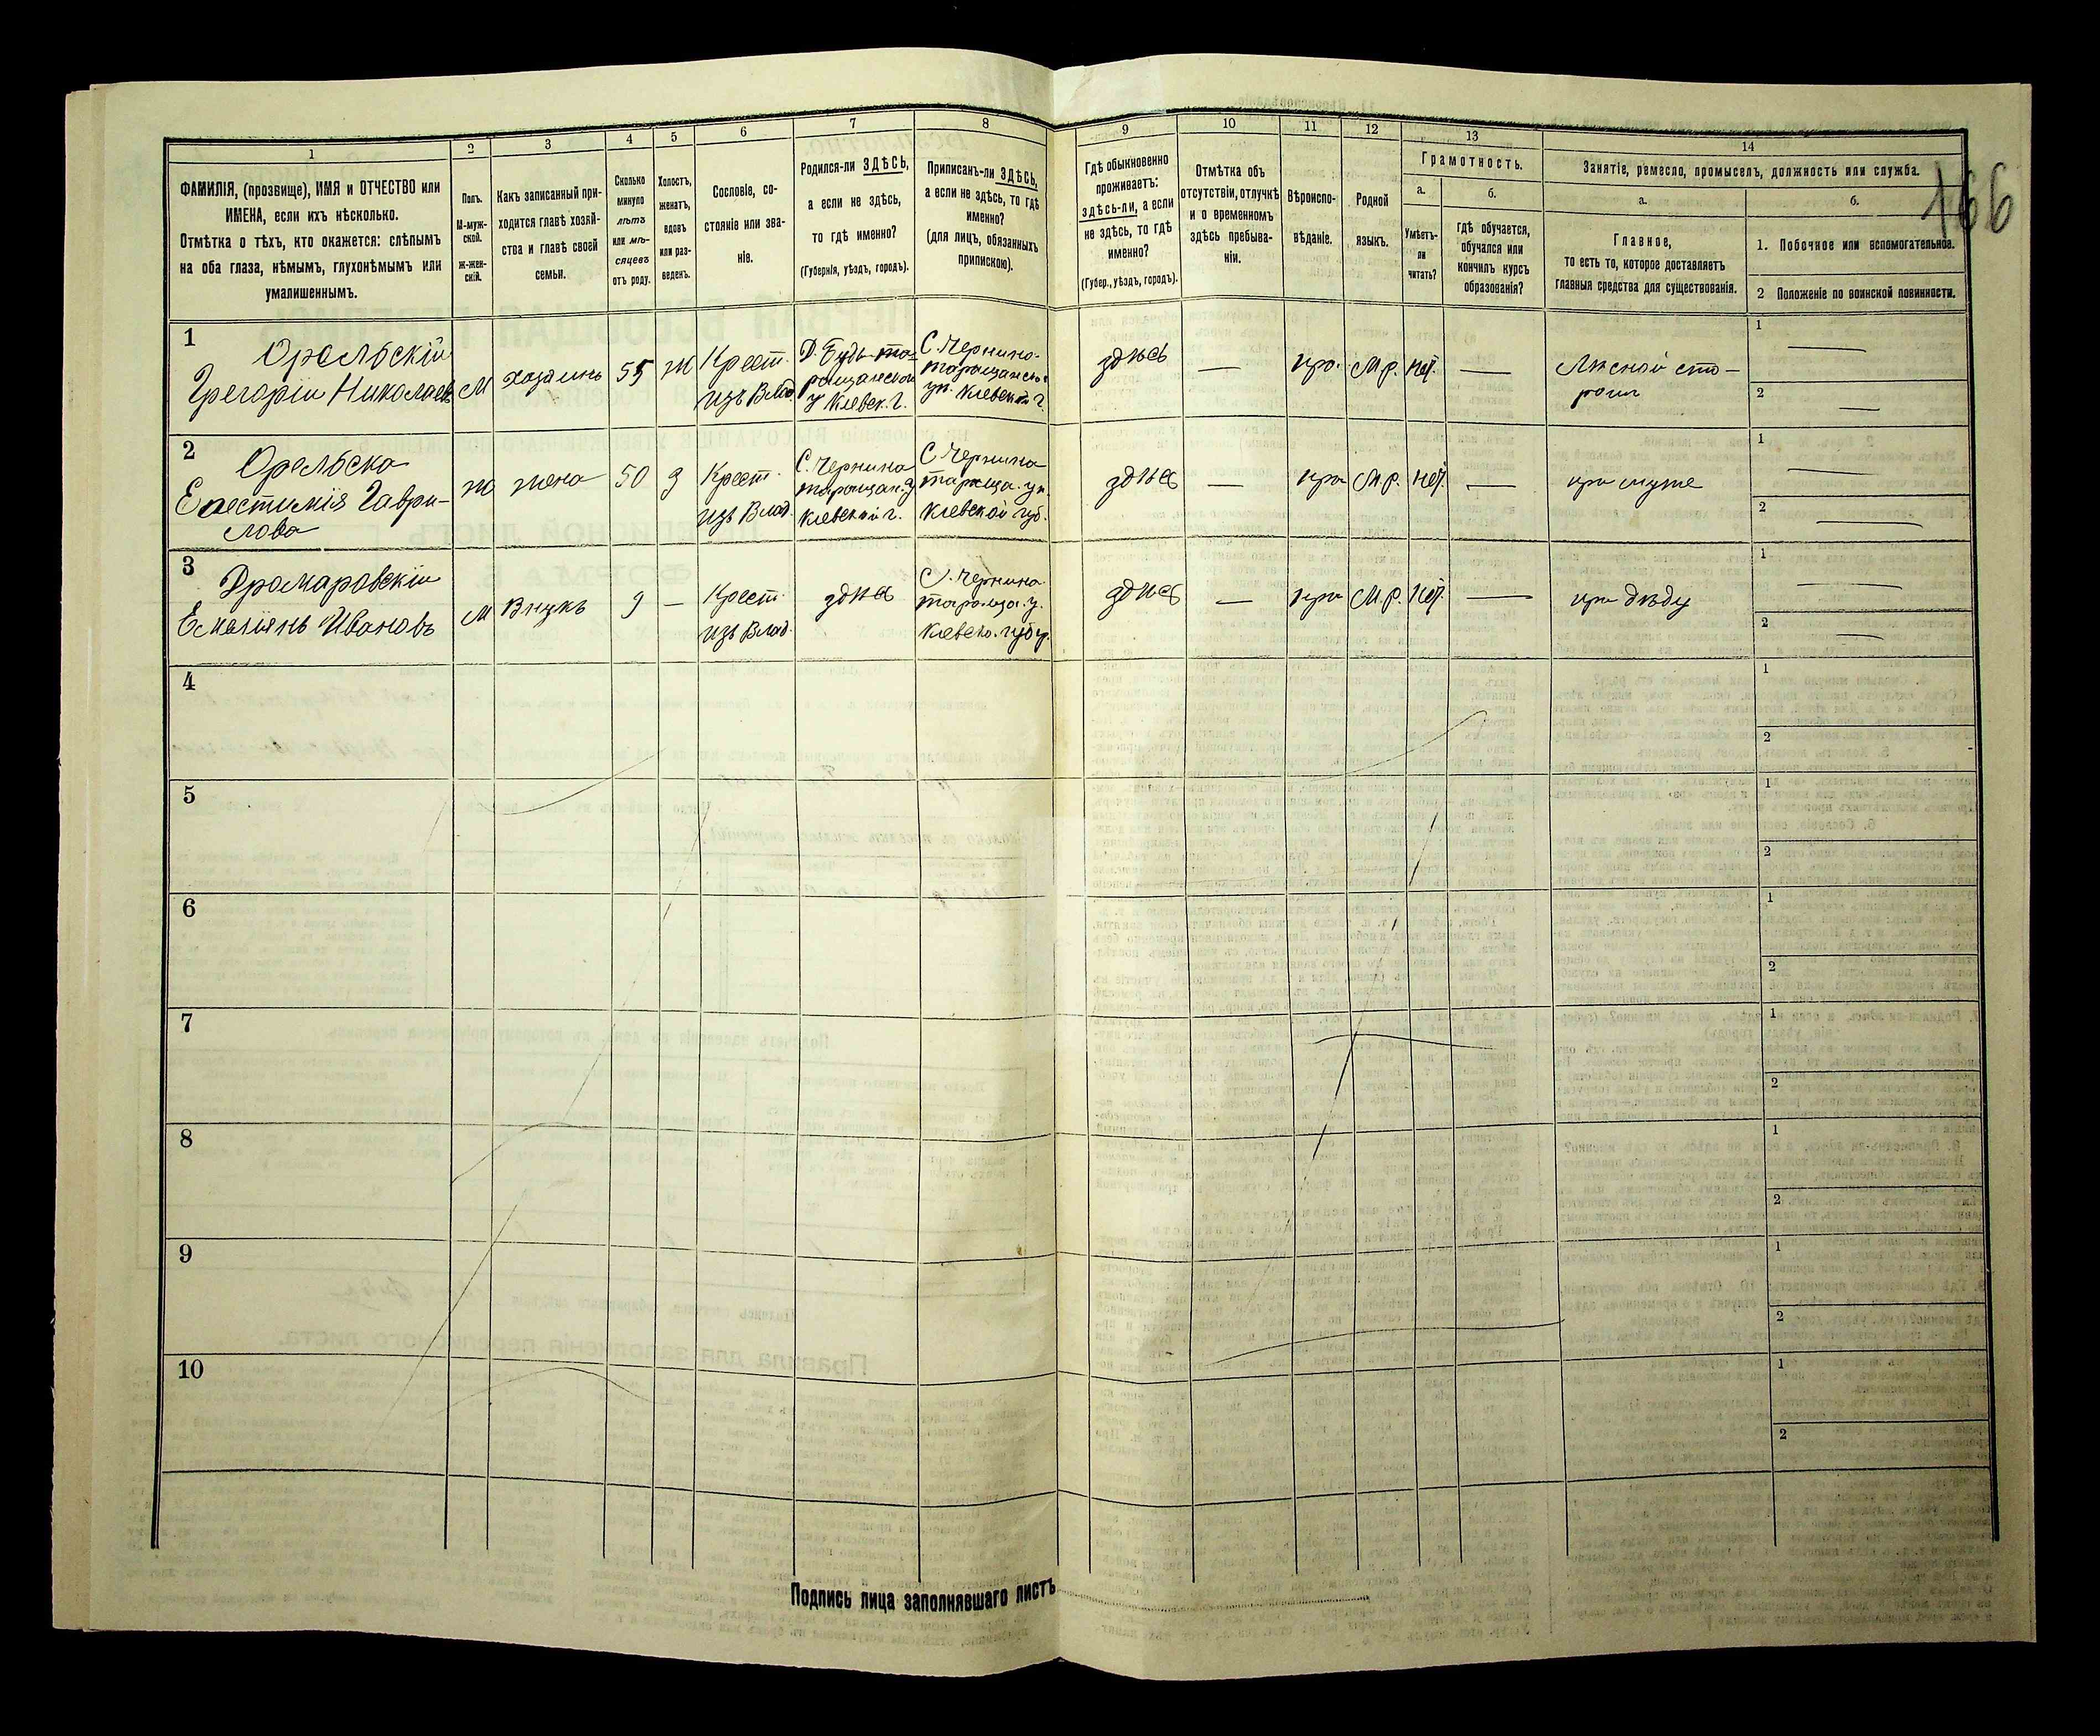 166
1
2
3
4
5
6
7
8
9
10
11
12
13
14
ФАМИЛІЯ, (прозвище), ИМЯ и ОТЧЕСТВО или
ИМЕНА, если ихъ нѣсколько.
Отмѣтка о тѣхъ, кто окажется: слѣпымъ
на оба глаза, нѣмымъ, глухонѣмымъ или
умалишеннымъ.
Полъ.
М-муж-
ской.
Ж-жен-
скій.
Какъ записанный при-
ходится главѣ хозяй-
ства и главѣ своей
семьи.
Сколько
минуло
лѣтъ
или мѣ-
сяцевъ
отъ роду.
Холостъ,
женатъ,
вдовъ
или раз-
веденъ.
Сословіе, со-
стояніе или зва-
ніе.
Родился-ли ЗДѢСЬ,
а если не здѣсь,
то гдѣ именно?
(Губернія, уѣздъ, городъ).
Приписанъ-ли ЗДѢСЬ,
а если не здѣсь, то гдѣ
именно?
(для лицъ, обязанныхъ
припискою).
Гдѣ обыкновенно
проживаетъ:
здѣсь-ли, а если
не здѣсь, то гдѣ
именно?
(Губер., уѣздъ, городъ).
Отмѣтка объ
отсутствіи, отлучкѣ
и о временномъ
здѣсь пребыва-
ніи.
Вѣроиспо-
вѣданіе.
Родной
языкъ.
Грамотность.
а.
Умѣетъ-
ли
читать?
б.
гдѣ обучается,
обучался или
кончилъ курсъ
образованія?
Занятіе, ремесло, промыселъ, должность или служба.
а.
Главное,
то есть то, которое доставляетъ
главныя средства для существованія.
б.
1. Побочное или вспомогательное.
2 Положеніе по воинской повинности.
1
Орельскій
Григорій Николаевъ
М
хозяинъ
55
ж
Крест.
изъ Влад.
Д. Буда та-
ращанской
у Кіевск. г.
С. Чернино-
таращанск.
уѣ. Кіевской г.
здѣсь
—
пра.
М.р.
нѣт.
—
Лѣсной сто-
рож
1 —
2 —
2
Орельска
Евестимія Гаври-
лова
ж
жена
50
з
Крест.
изъ Влад.
С. Чернина
таращан. у
Кіевской г.
С. Чернина
тараща. уѣ.
Кіевской губ.
здѣсь
—
пра
М.р.
нѣт.
—
при мужѣ
1 —
2 —
3
Дромаровскій
Емелянъ Ивановъ
М
Внукъ
9
—
Крест.
изъ Влад.
здѣсь
С. Чернина
тараща. у.
Кіевско. губ.
здѣсь
—
пра
М.р.
нѣт.
—
при дѣду
1 —
2 —
4
1
2
5
1
2
6
1
2
7
1
2
8
1
2
9
1
2
10
1
2
Подпись лица заполнявшаго листъ